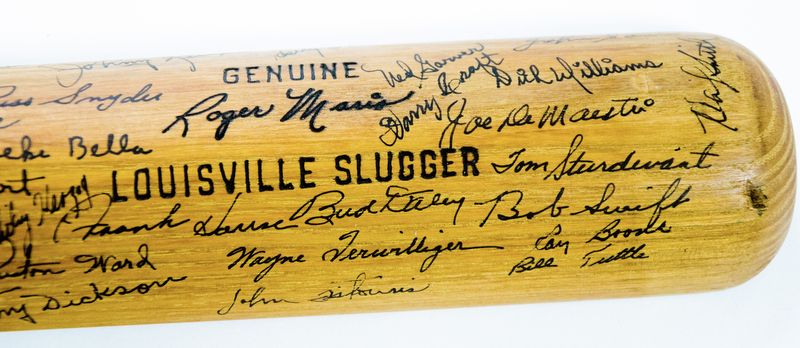 Johnny
GENUINE
Ned Garver
Dick Williams
Russ Snyder
Roger Maris
Harry Craft
Joe DeMaestri
Zeke Bella
LOUISVILLE SLUGGER
Tom Sturdivant
Whitey Herzog
Frank House
Bud Daley
Bob Swift
Preston Ward
Wayne Terwilliger
Ray Boone
Bill Tuttle
Dickson
John Tsitouris